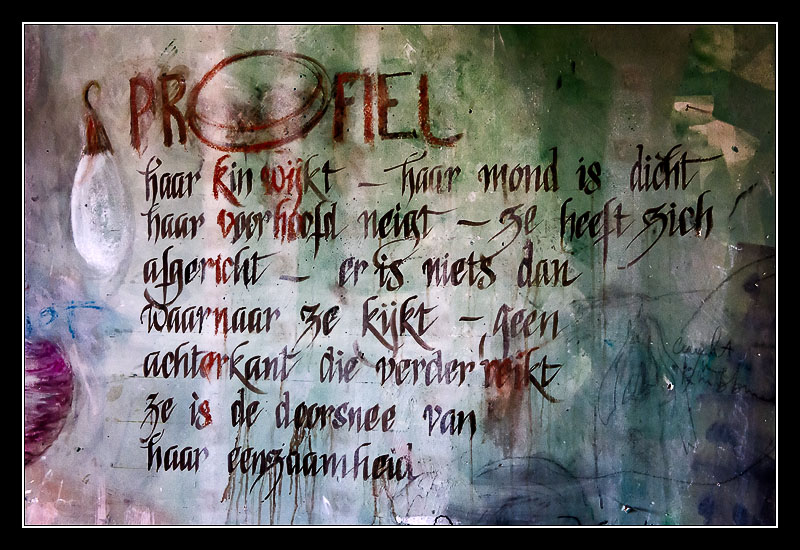 PROFIEL
haar kin wijkt – haar mond is dicht
haar voorhoofd neigt – ze heeft zich
afgericht – er is niets dan
waarnaar ze kijkt – geen
achterkant die verder reikt
ze is de doorsnee van
haar eenzaamheid